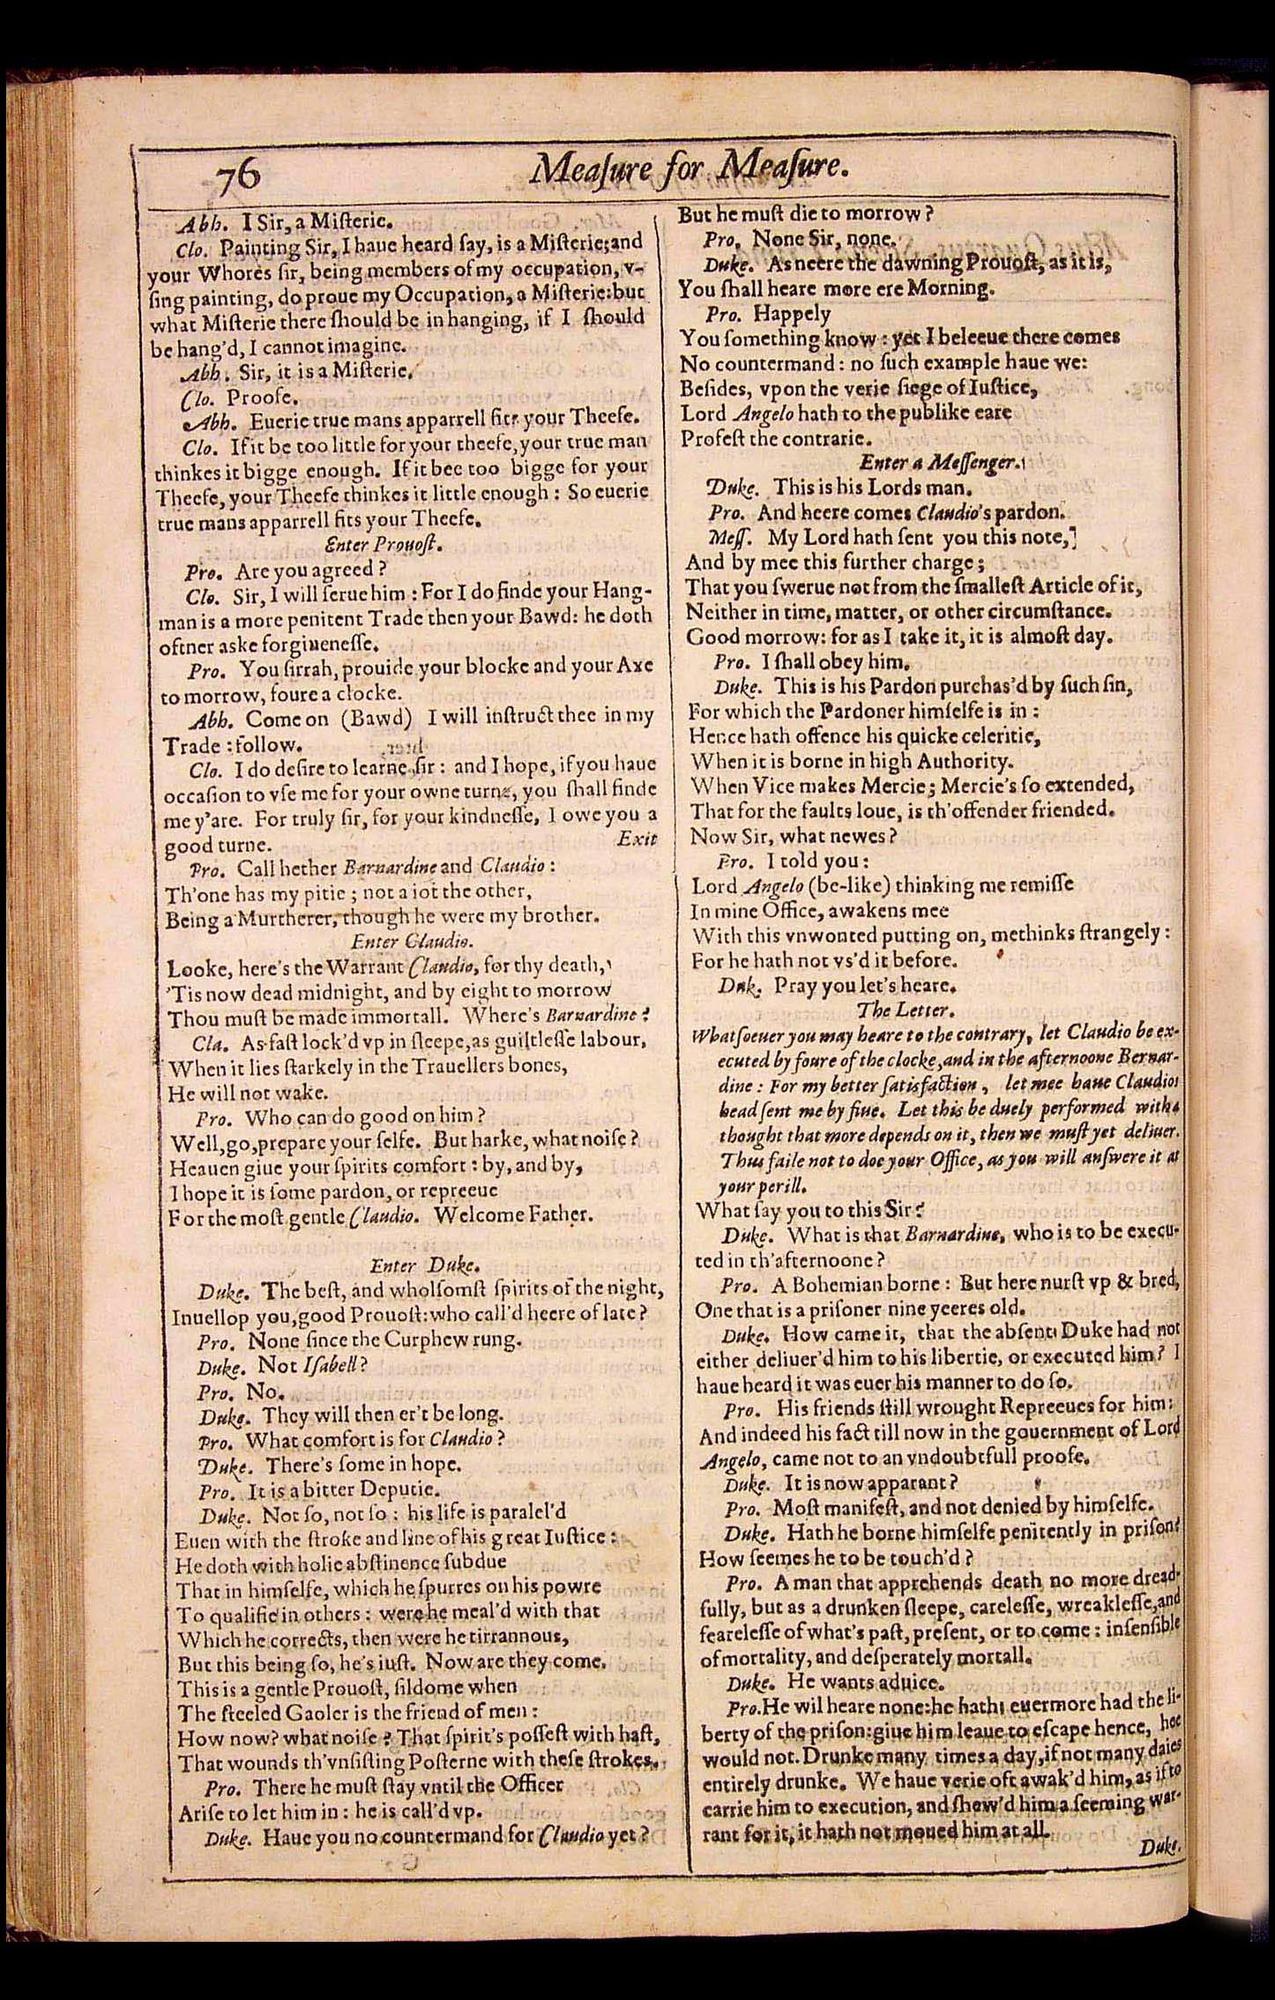 76
Meaſure for Meaſure.
Abh. I Sir, a Miſterie.
Clo. Painting Sir, I haue heard ſay, is a Miſterie; and
your Whores ſir, being members of my occupation, v-
ſing painting, do proue my Occupation, a Miſterie: but
what Miſterie there ſhould be in hanging, if I ſhould
be hang'd, I cannot imagine.
Abh. Sir, it is a Miſterie.
Clo. Proofe.
Abh. Euerie true mans apparrell fits your Theefe.
Clo. If it be too little for your theefe, your true man
thinkes it bigge enough. If it bee too bigge for your
Theefe, your Theefe thinkes it little enough: So euerie
true mans apparrell fits your Theefe.
Enter Prouoſt.
Pro. Are you agreed?
Clo. Sir, I will ſerue him: For I do finde your Hang-
man is a more penitent Trade then your Bawd: he doth
oftner aske forgiueneſſe.
Pro. You ſirrah, prouide your blocke and your Axe
to morrow, foure a clocke.
Abh. Come on (Bawd) I will inſtruct thee in my
Trade: follow.
Clo. I do deſire to learne ſir: and I hope, if you haue
occaſion to vſe me for your owne turne, you ſhall finde
me y'are. For truly ſir, for your kindneſſe, I owe you a
good turne. Exit
Pro. Call hether Barnardine and Claudio:
Th'one has my pitie; not a iot the other,
Being a Murtherer, though he were my brother.
Enter Claudio.
Looke, here's the Warrant Claudio, for thy death,
'Tis now dead midnight, and by eight to morrow
Thou muſt be made immortall. Where's Barnardine?
Cla. As faſt lock'd vp in ſleepe, as guiltleſſe labour,
When it lies ſtarkely in the Trauellers bones,
He will not wake.
Pro. Who can do good on him?
Well, go, prepare your ſelfe. But harke, what noiſe?
Heauen giue your ſpirits comfort: by, and by,
I hope it is ſome pardon, or repreeue
For the moſt gentle Claudio. Welcome Father.
Enter Duke.
Duke. The beſt, and wholſomſt ſpirits of the night,
Inuellop you, good Prouoſt: who call'd heere of late?
Pro. None ſince the Curphew rung.
Duke. Not Iſabell?
Pro. No.
Duke. They will then er't be long.
Pro. What comfort is for Claudio?
Duke. There's ſome in hope.
Pro. It is a bitter Deputie.
Duke. Not ſo, not ſo: his life is paralel'd
Euen with the ſtroke and line of his great Iuſtice:
He doth with holie abſtinence ſubdue
That in himſelfe, which he ſpurres on his powre
To qualifie in others: were he meal'd with that
Which he corrects, then were he tirrannous,
But this being ſo, he's iuſt. Now are they come.
This is a gentle Prouoſt, ſildome when
The ſteeled Gaoler is the friend of men:
How now? what noiſe? That ſpirit's poſſeſt with haſt,
That wounds th'vnſiſting Poſterne with theſe ſtrokes.
Pro. There he muſt ſtay vntil the Officer
Ariſe to let him in: he is call'd vp.
Duke. Haue you no countermand for Claudio yet?
But he muſt die to morrow?
Pro. None Sir, none.
Duke. As neere the dawning Prouoſt, as it is,
You ſhall heare more ere Morning.
Pro. Happely
You ſomething know: yet I beleeue there comes
No countermand: no ſuch example haue we:
Beſides, vpon the verie ſiege of Iuſtice,
Lord Angelo hath to the publike eare
Profeſt the contrarie.
Enter a Meſſenger.
Duke. This is his Lords man.
Pro. And heere comes Claudio's pardon.
Meſſ. My Lord hath ſent you this note,
And by mee this further charge;
That you ſwerue not from the ſmalleſt Article of it,
Neither in time, matter, or other circumſtance.
Good morrow: for as I take it, it is almoſt day.
Pro. I ſhall obey him.
Duke. This is his Pardon purchas'd by ſuch ſin,
For which the Pardoner himſelfe is in:
Hence hath offence his quicke celeritie,
When it is borne in high Authority.
When Vice makes Mercie; Mercie's ſo extended,
That for the faults loue, is th'offender friended.
Now Sir, what newes?
Pro. I told you:
Lord Angelo (be-like) thinking me remiſſe
In mine Office, awakens mee
With this vnwonted putting on, methinks ſtrangely:
For he hath not vs'd it before.
Duk. Pray you let's heare.
The Letter.
Whatſoeuer you may heare to the contrary, let Claudio be ex-
ecuted by foure of the clocke, and in the afternoone Bernar-
dine: For my better ſatisfaction, let mee haue Claudios
head ſent me by fiue. Let this be duely performed with a
thought that more depends on it, then we muſt yet deliuer.
Thus faile not to doe your Office, as you will anſwere it at
your perill.
What ſay you to this Sir?
Duke. What is that Barnardine, who is to be execu-
ted in th'afternoone?
Pro. A Bohemian borne: But here nurſt vp & bred,
One that is a priſoner nine yeeres old.
Duke. How came it, that the abſent Duke had not
either deliuer'd him to his libertie, or executed him? I
haue heard it was euer his manner to do ſo.
Pro. His friends ſtill wrought Repreeues for him:
And indeed his fact till now in the gouernment of Lord
Angelo, came not to an vndoubtfull proofe.
Duke. It is now apparant?
Pro. Moſt manifeſt, and not denied by himſelfe.
Duke. Hath he borne himſelfe penitently in priſon?
How ſeemes he to be touch'd?
Pro. A man that apprehends death no more dread-
fully, but as a drunken ſleepe, careleſſe, wreakleſſe, and
feareleſſe of what's paſt, preſent, or to come: inſenſible
of mortality, and deſperately mortall.
Duke. He wants aduice.
Pro. He wil heare none: he hath euermore had the li-
berty of the priſon: giue him leaue to eſcape hence, hee
would not. Drunke many times a day, if not many daies
entirely drunke. We haue verie oft awak'd him, as if to
carrie him to execution, and ſhew'd him a ſeeming war-
rant for it, it hath not moued him at all.
Duke.